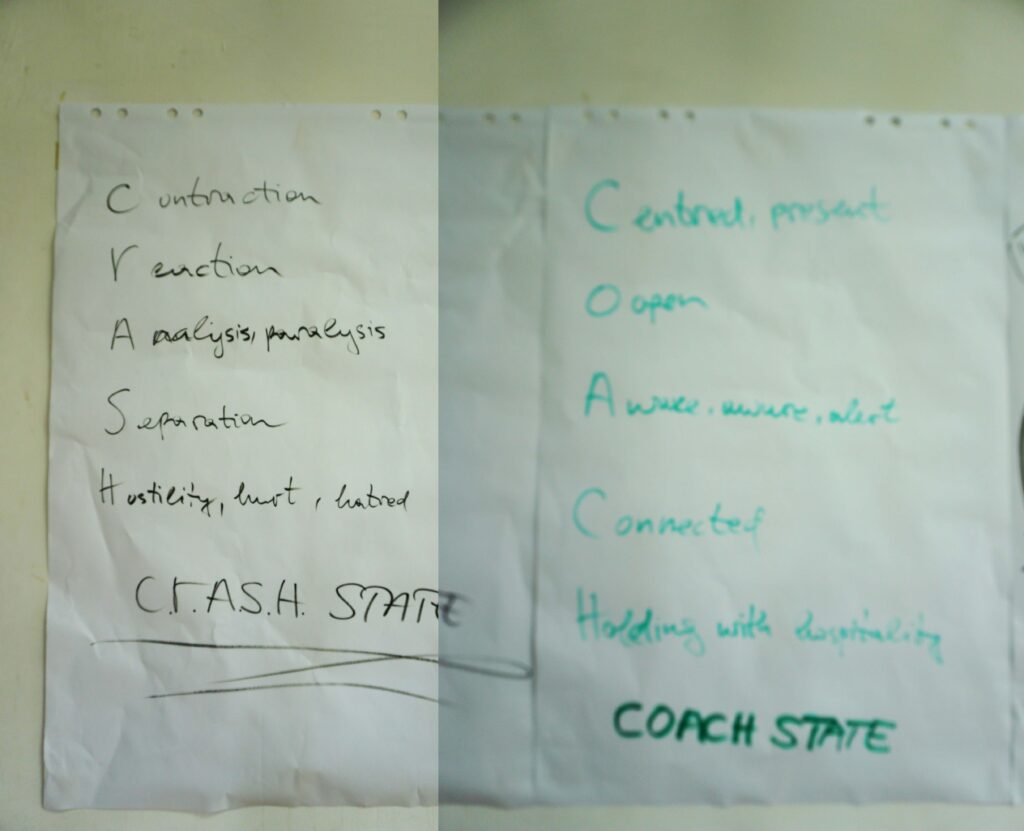 Contraction
reaction
Analysis, paralysis
Separation
Hostility, hurt, hatred
C.r.A.S.H. STATE
Centred, present
O open
Awake, aware, alert
Connected
Holding with hospitality
COACH STATE